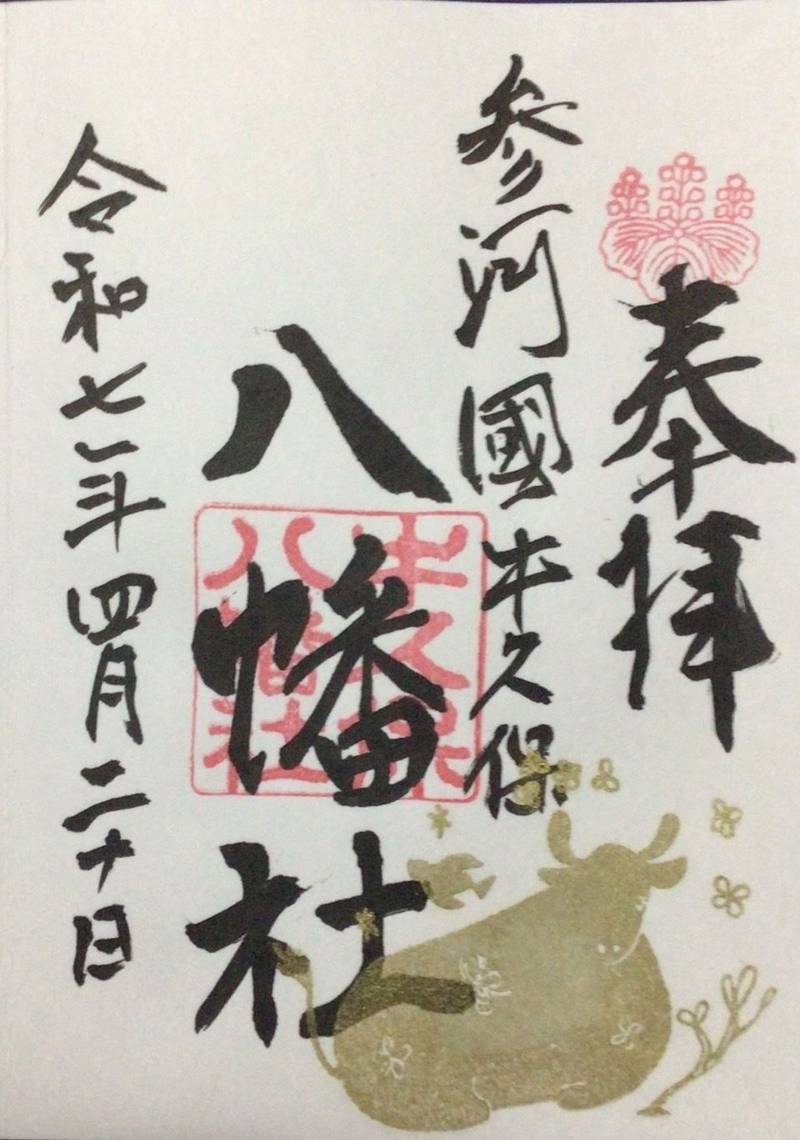 奉拝
参河國牛久保
八幡社
牛久保
八幡社
令和七年四月二十日